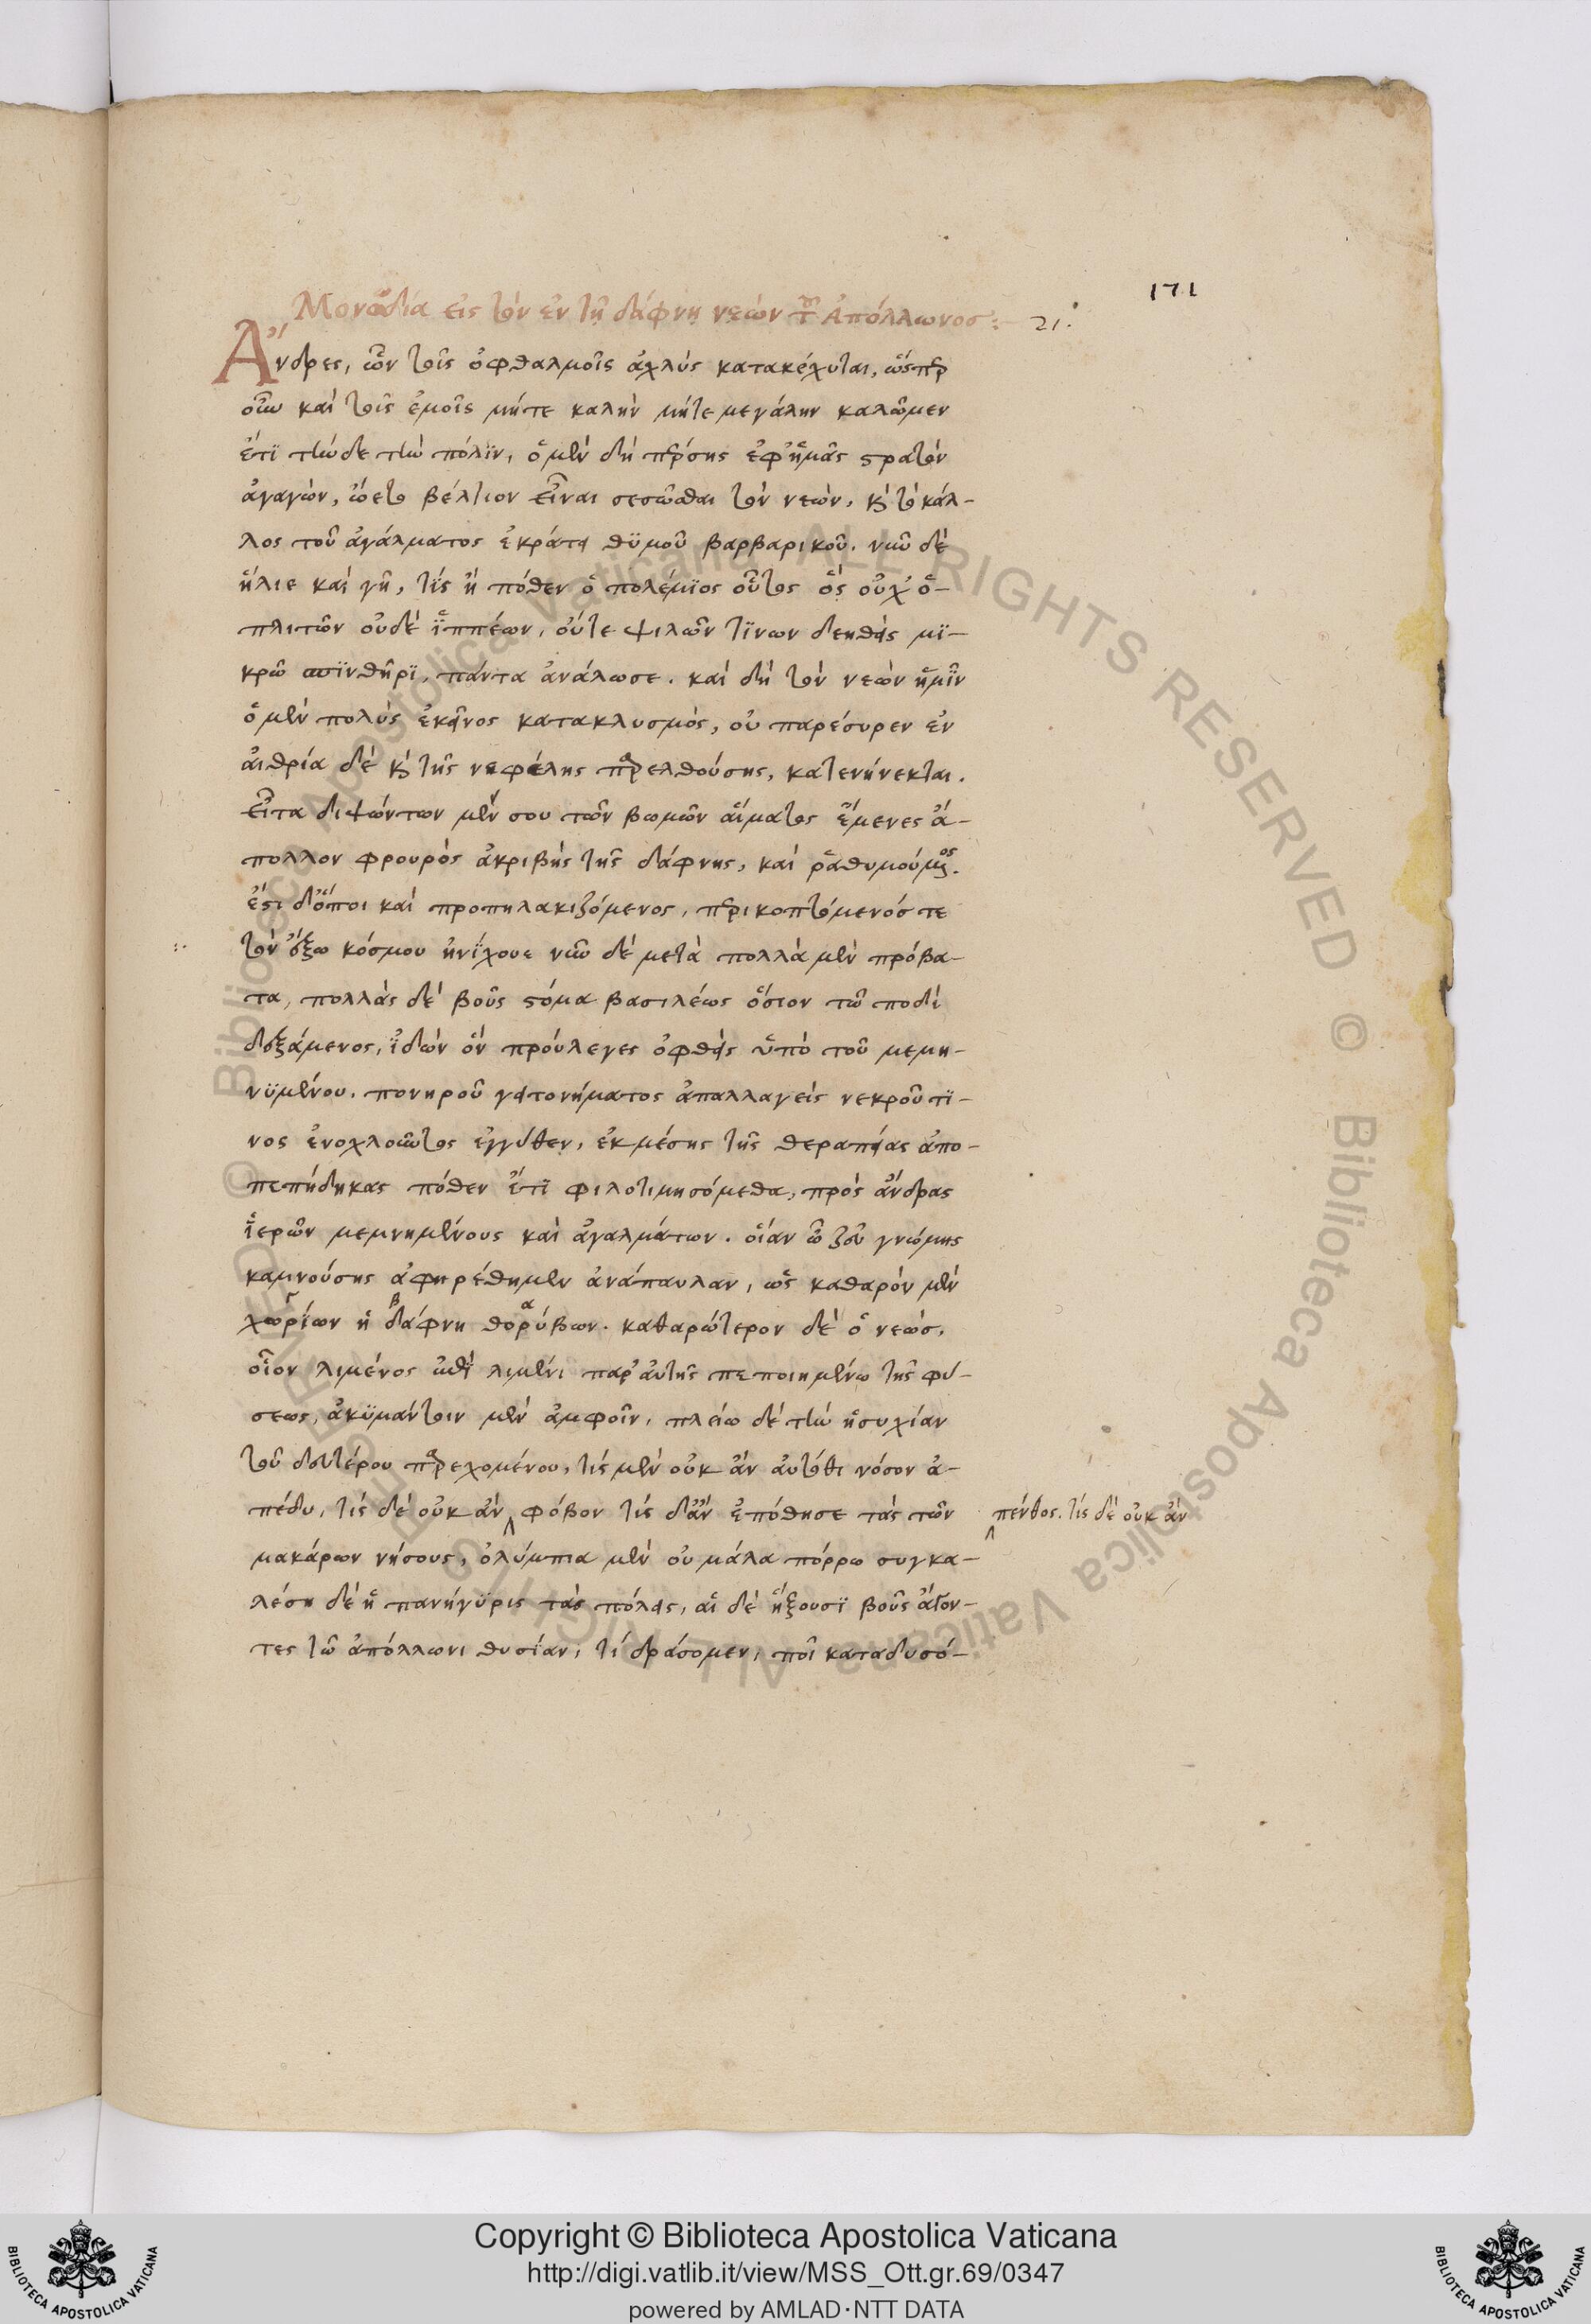 171
Μονωδία εἰς τὸν ἐν τῇ δάφνη νεὼν τοῦ Ἀπόλλωνος :– 21.
Ἄνδρες, ὧν τοῖς ὀφθαλμοῖς ἀχλὺς κατακέχυται, ὥσπερ
οὖν καὶ τοῖς ἐμοῖς μήτε καλὴν μήτε μεγάλην καλῶμεν
ἔτϊ τήνδε τὴν πόλϊν, ὁ μὲν δὴ πέρσης ἐφ' ἡμᾶς στρατὸν
ἀγαγὼν, ὤετο βέλτιον εἶναι σεσῶσθαι τὸν νεὼν, κ τὸ κάλ-
λος τοῦ ἀγάλματος ἐκράτει θϋμοῦ βαρβαρικοῦ. νῦν δὲ
ἥλιε καὶ γῆ, τίς ἢ πόθεν ὁ πολέμϊος οὗτος ὃς οὐχ' ὁ-
πλιτῶν οὐδὲ ἱππέων, οὔτε ψιλῶν τϊνων δεηθεὶς μϊ-
κρῶ σπϊνθῆρϊ, πάντα ἀνάλωσε. καὶ δὴ τὸν νεὼν ἡμῖν
ὁ μὲν πολὺς ἐκεῖνος κατακλυσμὸς, οὐ παρέσυρεν ἐν
αἰθρία δὲ κ τῆς νεφέλης παρελθούσης, κατενήνεκται.
Εἶτα διψώντων μέν σου τῶν βωμῶν αἵματος ἔμενες ἄ-
πολλον φρουρὸς ἀκριβὴς τῆς δάφνης, καὶ ῥαθυμούμενος.
ἔστι δ' ὅποι καὶ προπηλακιζόμενος, περικοπτόμενός τε
τὸν ἔξω κόσμου ἠνίχου· νῦν δὲ μετὰ πολλὰ μὲν πρόβα-
τα, πολλὰς δὲ βοῦς στόμα βασιλέως ὅσιον τῶ ποδὶ
δεξάμενος, ἰδὼν ὃν πρόυλεγες ὀφθεὶς ὑπὸ τοῦ μεμη-
νϋμένου. πονηροῦ γειτονήματος ἀπαλλαγεὶς νεκροῦ τϊ-
νος ἐνοχλοῦντος ἐγγύθεν, ἐκ μέσης τῆς θεραπείας ἀπο-
πεπήδηκας πόθεν ἔτϊ φιλοτιμησόμεθα, πρὸς ἄνδρας
ἱερῶν μεμνημένους καὶ ἀγαλμάτων. οἵαν ὦ ζεῦ γνώμης
καμνούσης ἀφηρέθημεν ἀνάπαυλαν, ὡς καθαρὸν μὲν
χωρίων ἡ δάφνη θορύβων. καθαρώτερον δὲ ὁ νεώς.
οἷον λιμένος ἐπὶ λιμένι παρ' αὐτῆς πεποιημένω τῆς φύ-
σεως, ἀκϋμάντοιν μὲν ἀμφοῖν, πλείω δὲ τὴν ἡσυχίαν
τοῦ δευτέρου παρεχομένου, τίς μὲν οὐκ ἂν αὐτόθι νόσον ἀ-
πέδυ, τίς δὲ οὐκ ἂν ‸ φόβον τίς δ' ἂν ἐπόθησε τὰς τῶν ‸ πένθος. τίς δὲ οὐκ ἂν
μακάρων νήσους, ὀλύμπια μὲν οὐ μάλα πόρρω συγκα-
λέση δὲ ἡ πανήγϋρις τὰς πόλεις, αἱ δὲ ἥξουσϊ βοῦς ἄγον-
τες τῶ ἀπόλλωνι θυσίαν, τί δράσομεν, ποῖ καταδυσό-
Copyright © Biblioteca Apostolica Vaticana
http://digi.vatlib.it/view/MSS_Ott.gr.69/0347
powered by AMLAD·NTT DATA
BIBLIOTECA APOSTOLICA VATICANA
BIBLIOTECA APOSTOLICA VATICANA
© Biblioteca Apostolica Vaticana ALL RIGHTS RESERVED © Biblioteca Apostolica Vaticana ALL RIGHTS RESERVED